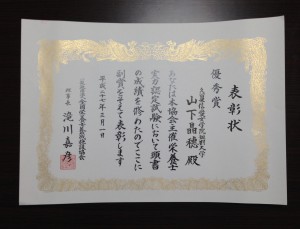 表彰状
優秀賞
久留米信愛女学院短期大学
山下晶穂殿
あなたは本協会主催栄養士
実力認定試験において頭書
の成績を修めたのでここに
副賞をそえて表彰します
平成二十七年三月一日
一般社団法人全国栄養士養成施設協会
理事長 滝川嘉彦